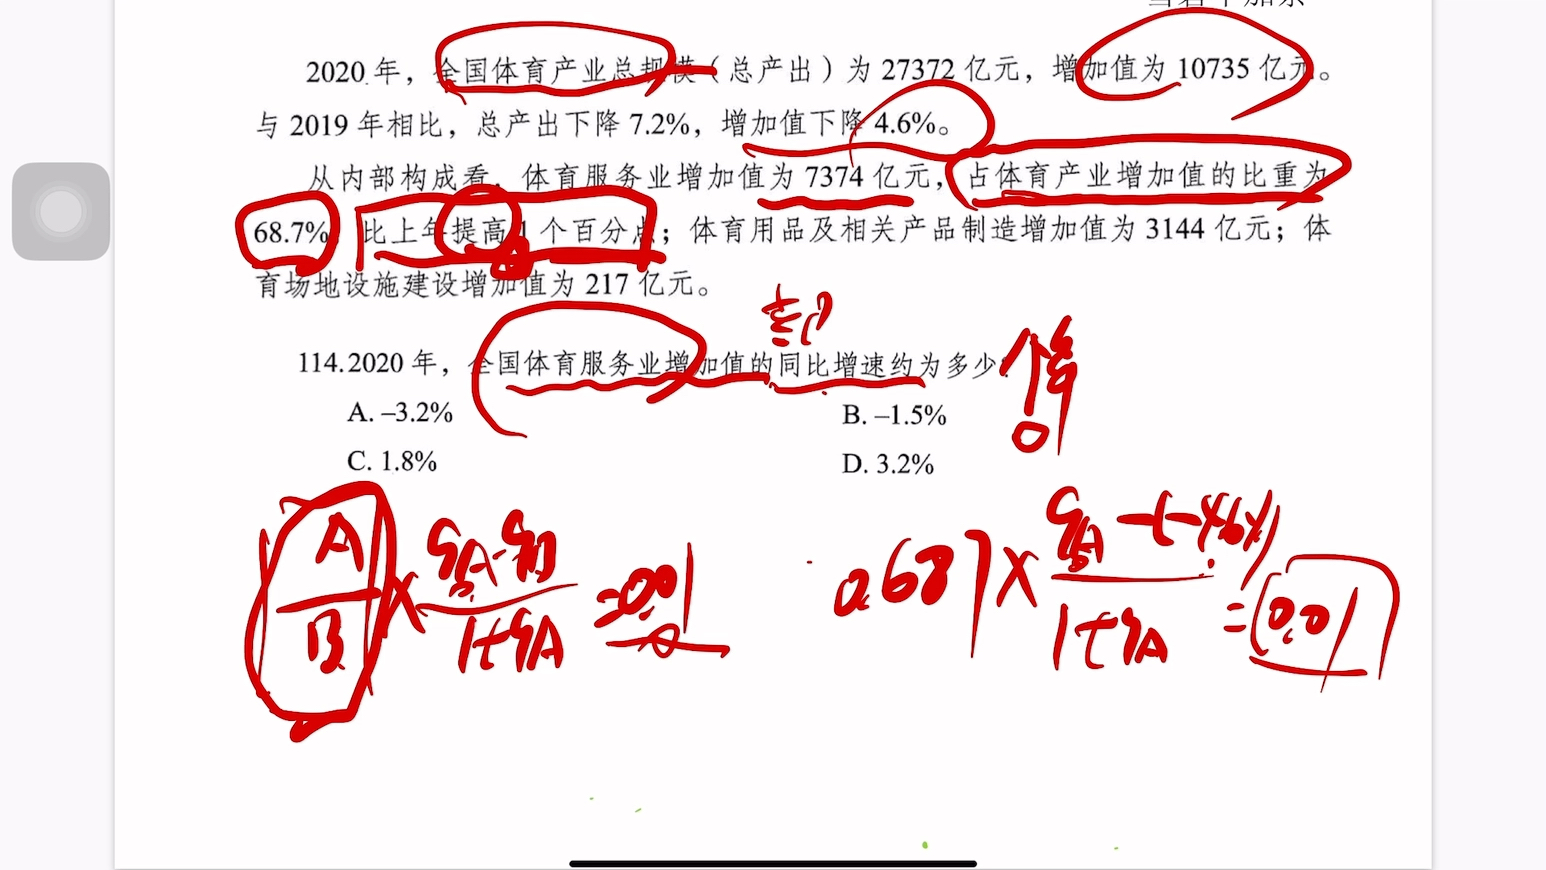 2020年，全国体育产业总规模（总产出）为27372亿元，增加值为10735亿元。
与2019年相比，总产出下降7.2%，增加值下降4.6%。
从内部构成看，体育服务业增加值为7374亿元，占体育产业增加值的比重为
68.7%，比上年提高1个百分点；体育用品及相关产品制造增加值为3144亿元；体
育场地设施建设增加值为217亿元。
114.2020年，全国体育服务业增加值的同比增速约为多少
降
A. –3.2%
B. –1.5%
C. 1.8%
D. 3.2%
A/B × (qA-qB)/(1+qA) =0.01
0.687× (qA-(-4.6%))/(1+qA) =0.01